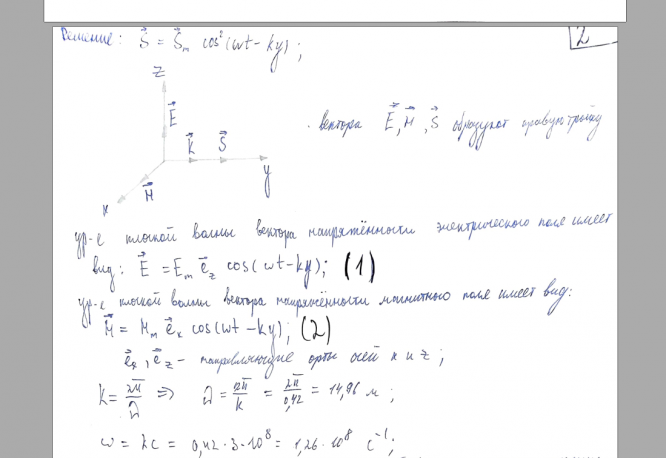 Решение: S⃗ = S⃗ₘ cos²(ωt - ky);
2
z
E⃗
вектора E⃗, H⃗, S⃗ образуют правую тройку
k⃗ S⃗
y
H⃗
x
ур-е плоской волны вектора напряжённости электрического поля имеет
вид: E⃗ = Eₘ e⃗_z cos(ωt - ky); (1)
ур-е плоской волны вектора напряжённости магнитного поля имеет вид:
H⃗ = Hₘ e⃗ₓ cos(ωt - ky); (2)
e⃗ₓ, e⃗_z - направляющие орты осей x и z;
k = 2π/λ ⇒ λ = 2π/k = 2π/0,42 = 14,96 м;
ω = kc = 0,42·3·10⁸ = 1,26·10⁸ с⁻¹;